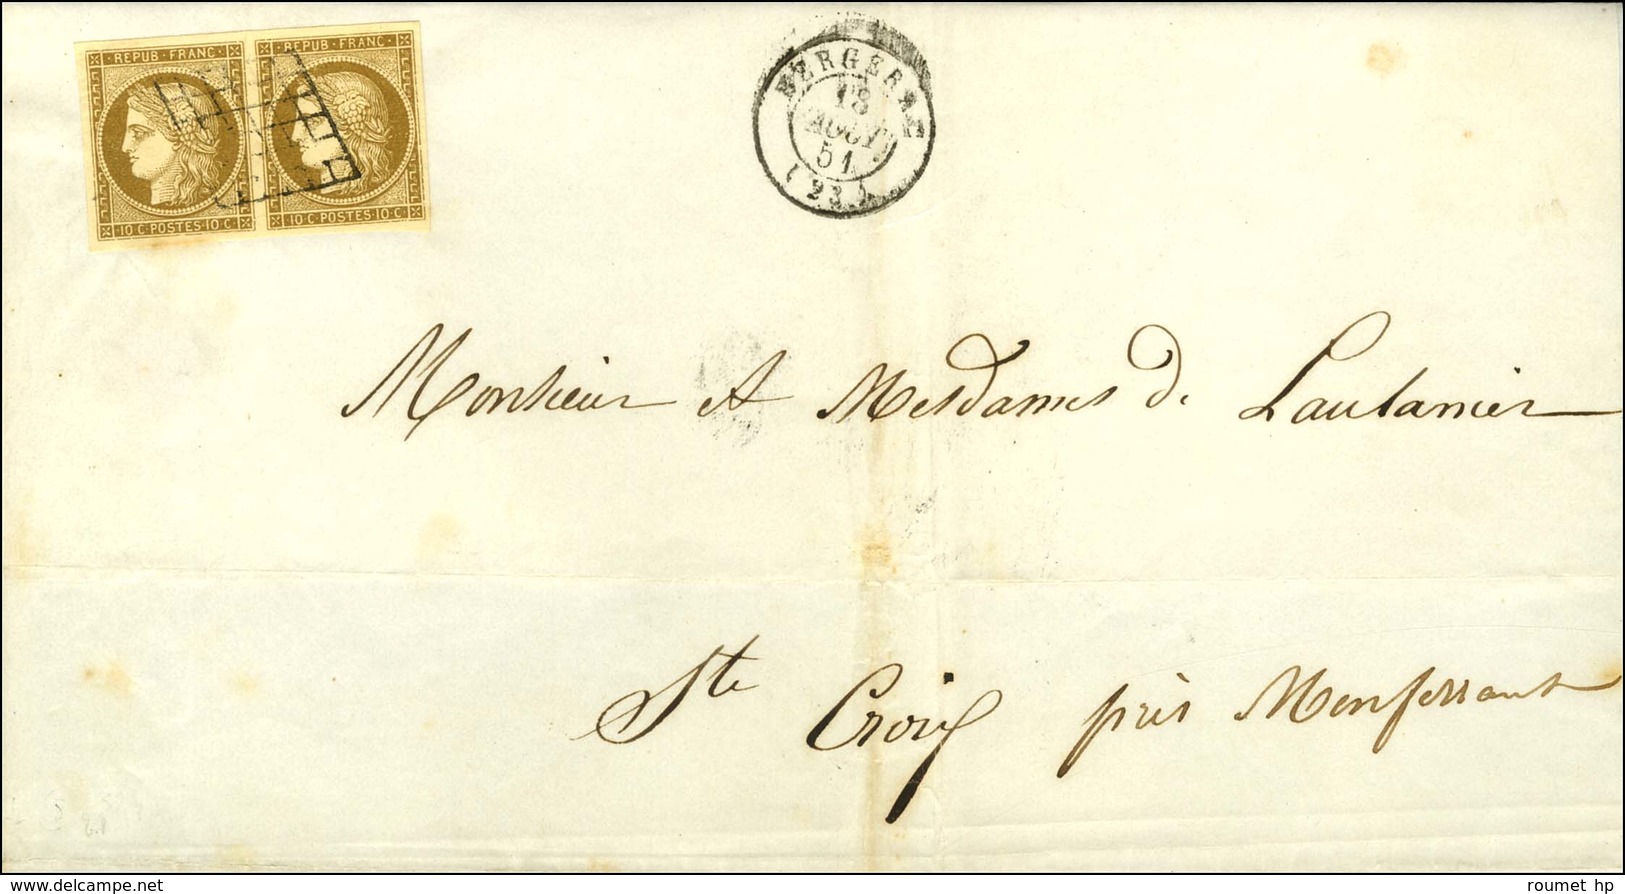 REPUB FRANC REPUB FRANC
10 C POSTES 10 C 10 C POSTES 10 C
BERGERAC
18
AOUT
51
(23)
Monsieur et Mesdames de Laulanier
Ste Croix près Monferrant
www.delcampe.net
roumet hp